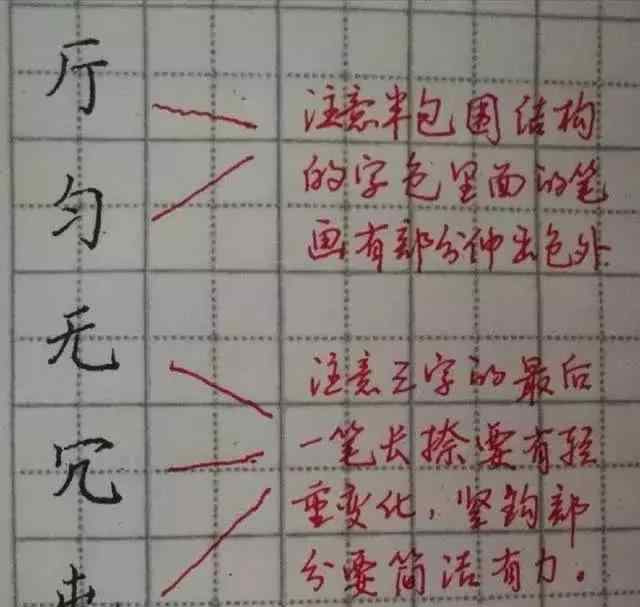 厅
匀
注意半包围结构
的字包里面的笔
画有部分伸出包外
无
冗
注意三字的最后
一笔长捺要有轻
重变化，竖钩部
分要简洁有力。